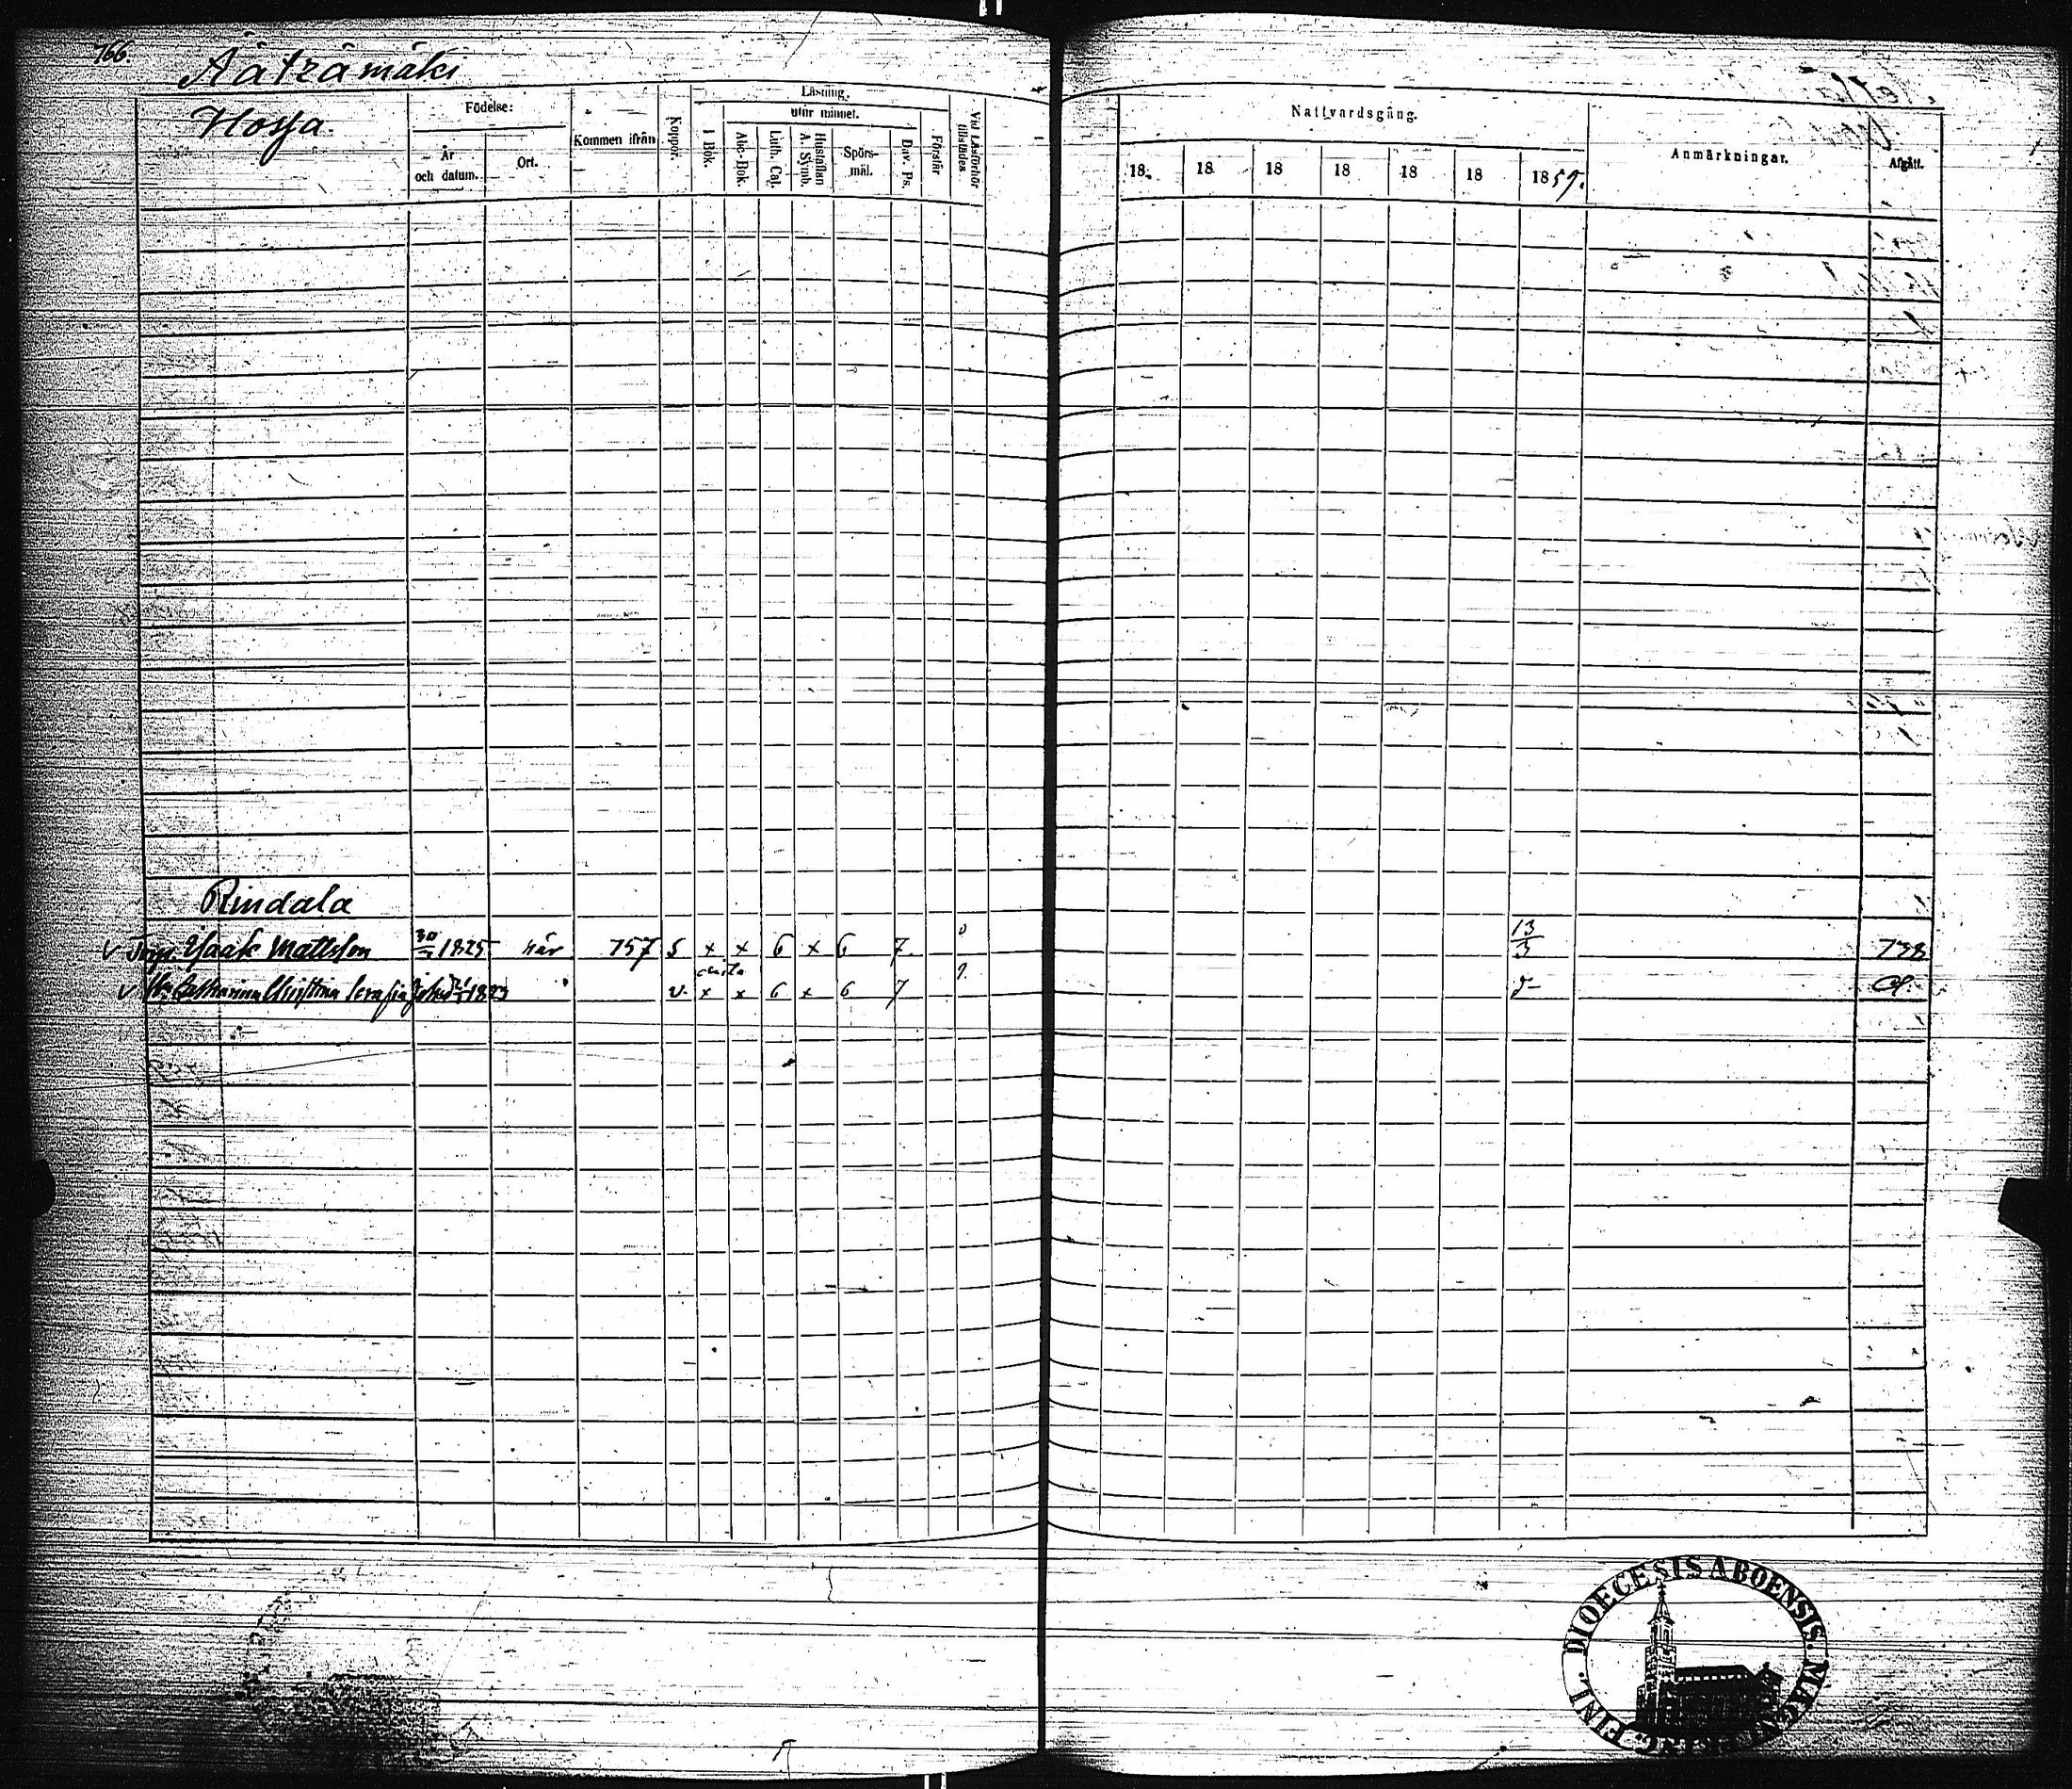 766.
Ääträmäki
Hosja.
Födelse:
År och datum.
Ort.
Kommen ifrån
Koppor.
Läsning.
utur minnet.
I Bok.
Abc-Bok.
Luth. Cat.
Hustaflan A. Symb.
Spörs-mål.
Dav. Ps.
Förstår
Vid Läsförhör tillstädes
Nattvardsgång.
18 18 18 18 18 18 1859.
Anmärkningar.
Afgått.
Rindala
Isaak Mattsson 30 1825 här 757 s x x 6 x 6 7. 13/3 728
Catharina Christina Serafia v. x x 6 x 6 7
DIOECESIS ABOENSIS. FINL.